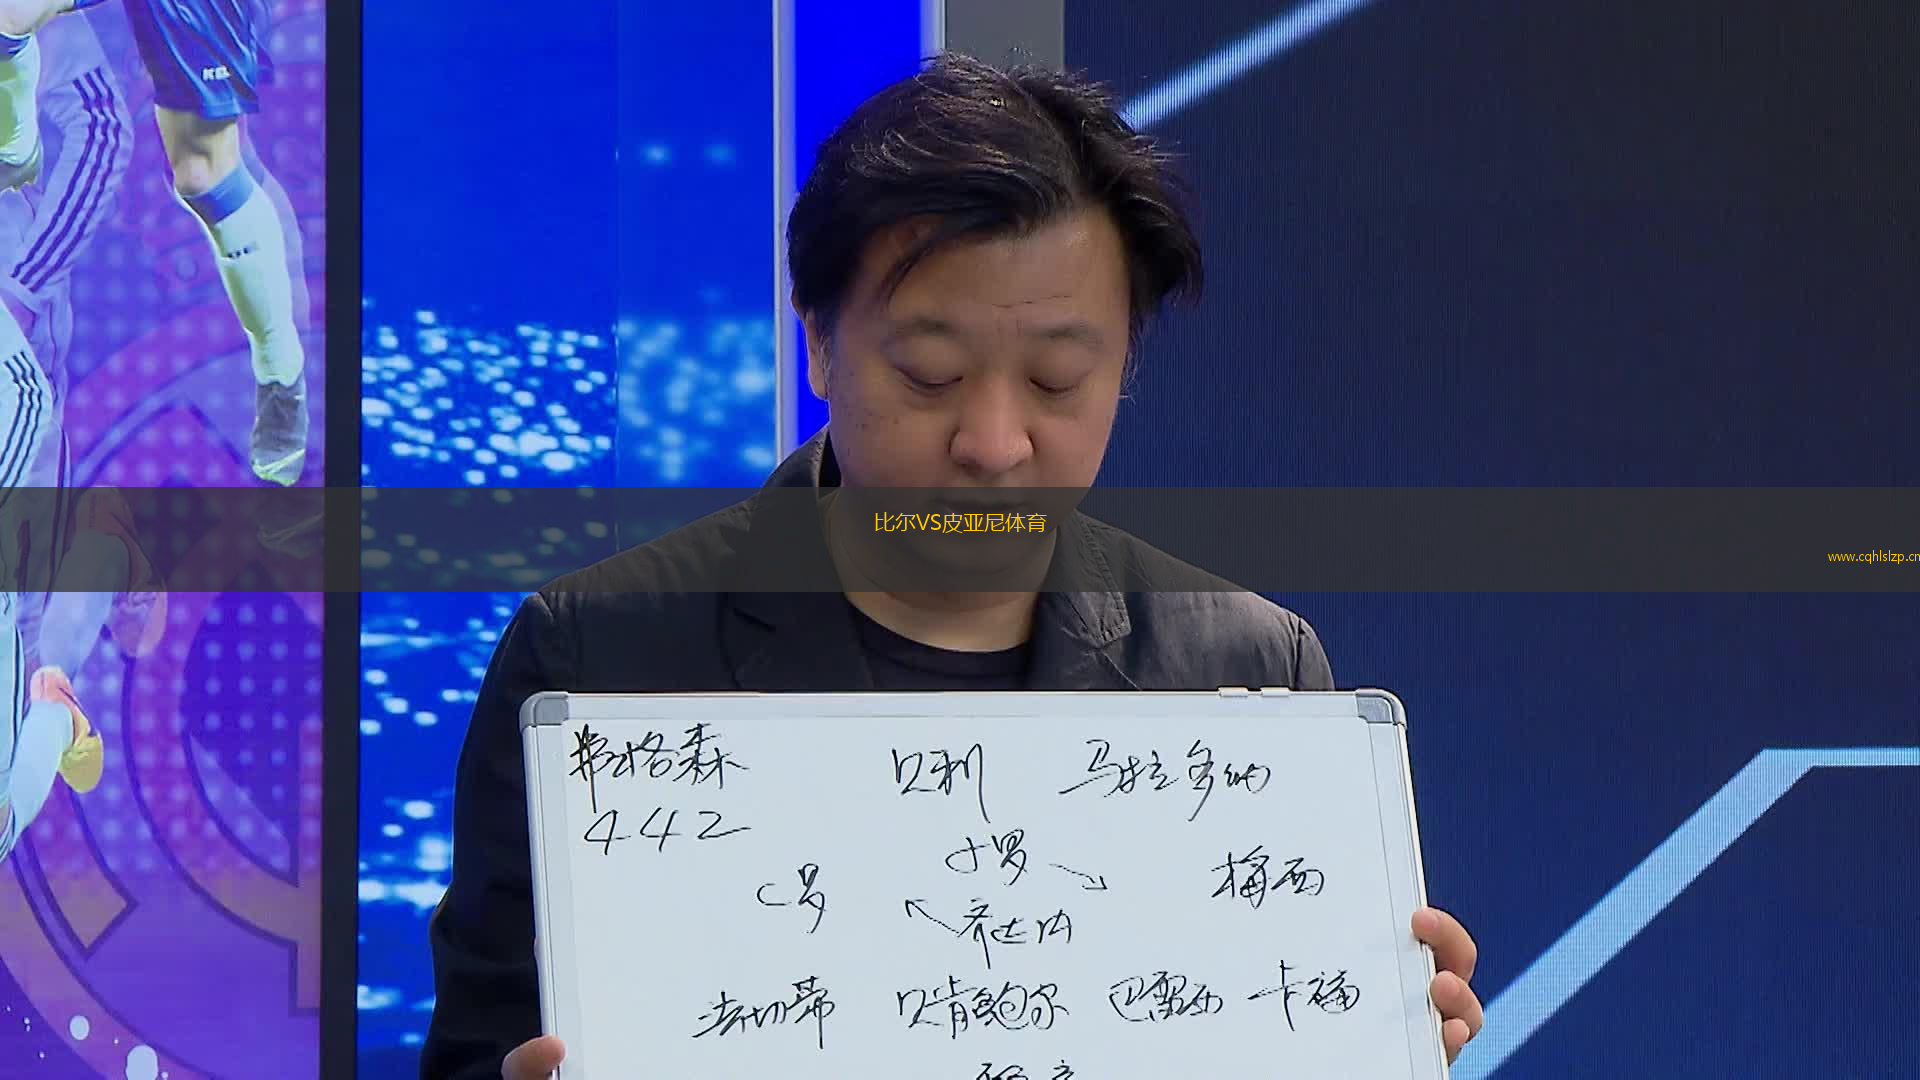 比尔VS皮亚尼体育
www.cqhlslzp.cn
弗格森 贝利 马拉多纳
442
小罗
C罗 梅西
齐达内
法切蒂 贝肯鲍尔 巴雷西 卡福